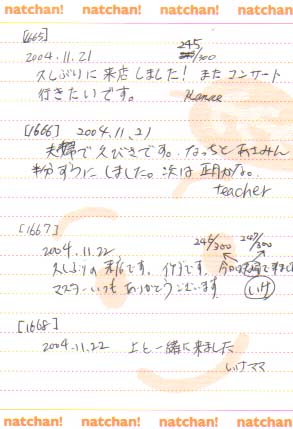 natchan! natchan! natchan! natchan!
[1665] 245/300
2004.11.21
久しぶりに来店しました! また コンサート
行きたいです。 Kanae
[1666] 2004.11.21
夫婦で 久びさです。なっちと あさみん
しました。次は 正月かな。
teacher
[1667]
2004.11.22 246/300 247/300
久しぶりの 来店です。 今日は夫婦で来ました
マスターいつも ありがとうございます
[1668]
2004.11.22 上と一緒に来ました
いけママ
natchan! natchan! natchan! natchan!